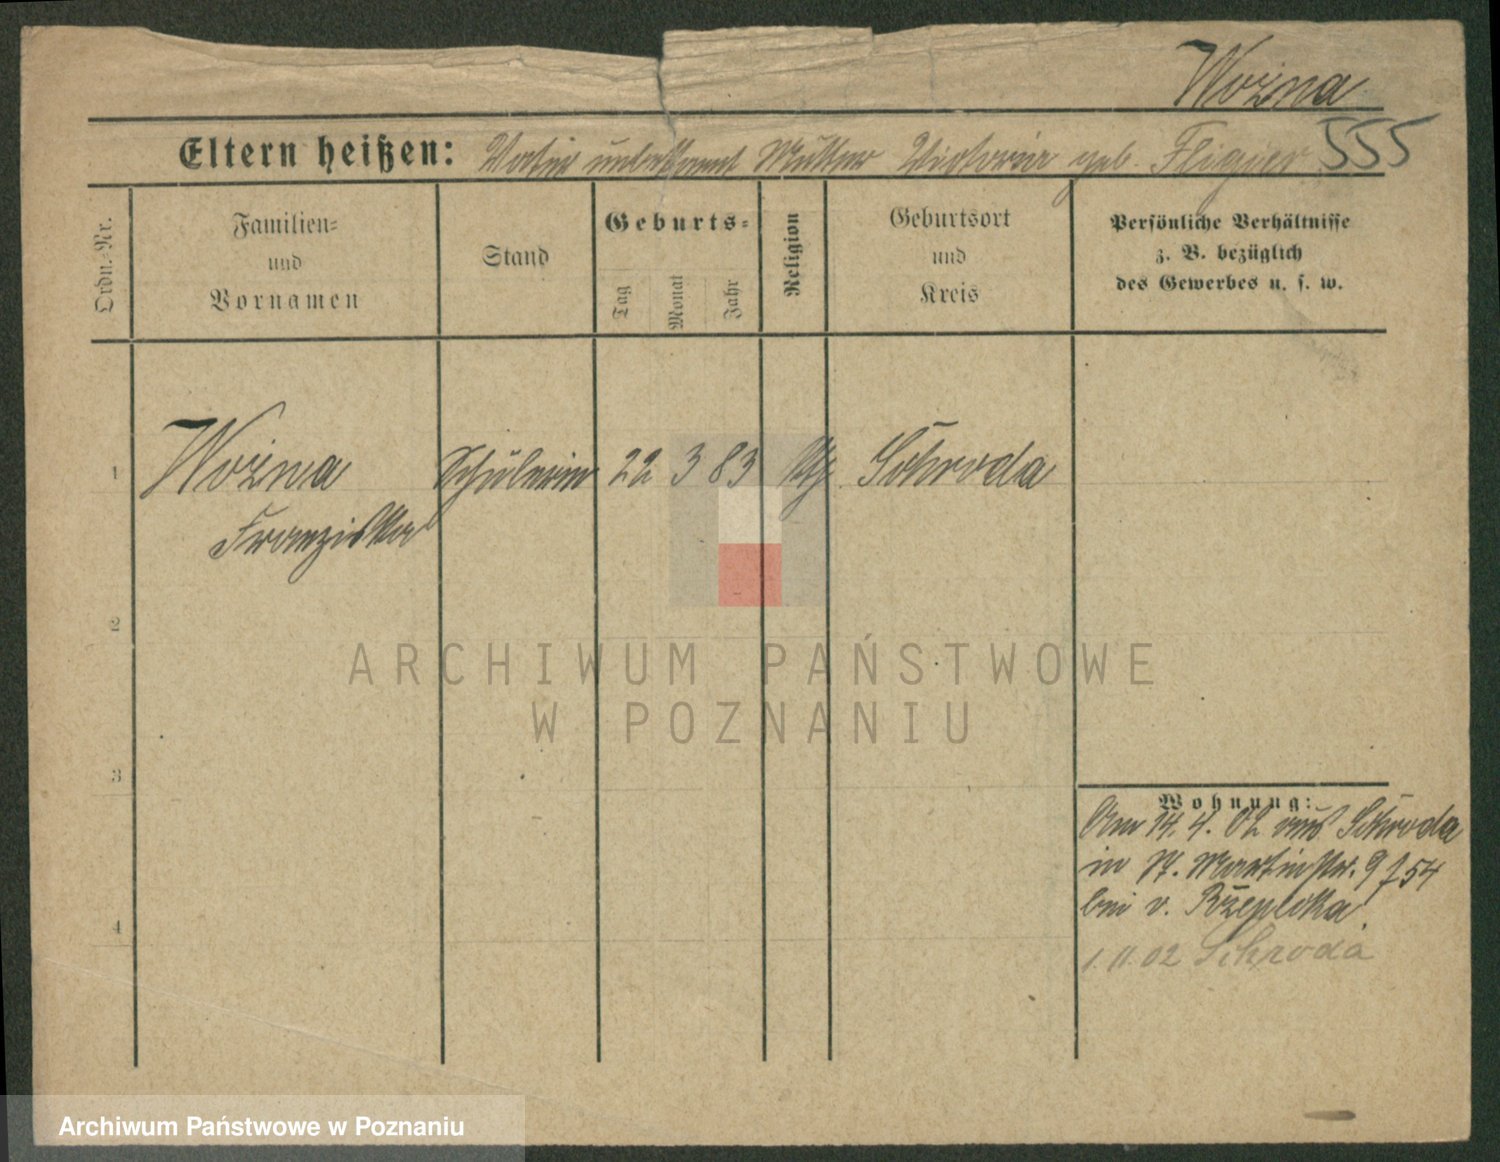 Woźna
Eltern heißen: Vater unbekannt Mutter Victoria geb. Fligier 555
Ordn.-Nr.
Familien-
und
Vornamen
Stand
Geburts-
Tag
Monat
Jahr
Religion
Geburtsort
und
Kreis
Persönliche Verhältnisse
z. B. bezüglich
des Gewerbes u. s. w.
1 Woźna Schülerin 22 3 83 kth Schroda
Franziska
2
3
4
Wohnung:
Am 14. 4. 02 aus Schroda
in St. Martinstr. 9 f 54
bei v. Rzepecka
1. 11. 02 Schroda
ARCHIWUM PAŃSTWOWE
W POZNANIU
Archiwum Państwowe w Poznaniu